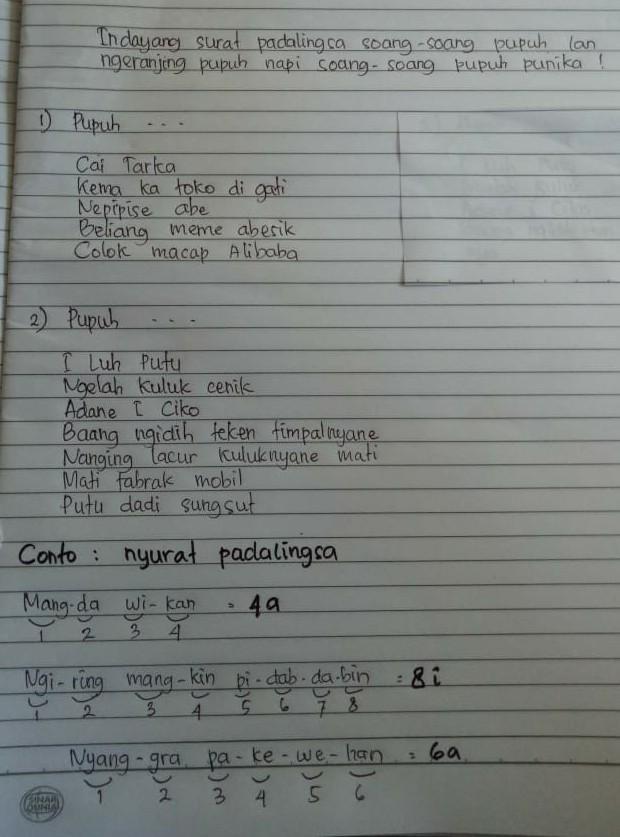 Indayang surat padalingsa soang-soang pupuh lan
ngeranjing pupuh napi soang-soang pupuh punika !
1) Pupuh ...
Cai Tarka
Kema ka toko di gati
Nepipise abe
Beliang meme abesik
Colok macap Alibaba
2) Pupuh ...
I Luh Putu
Ngelah kuluk cenik
Adane I Ciko
Baang ngidih teken timpalnyane
Nanging lacur kuluknyane mati
Mati tabrak mobil
Putu dadi sungsut
Conto : nyurat padalingsa
Mang-da wi-kan = 4a
1 2 3 4
Ngi-ring mang-kin pi-dab-da-bin = 8i
1 2 3 4 5 6 7 8
Nyang-gra pa-ke-we-han = 6a
1 2 3 4 5 6
SINAR
DUNIA